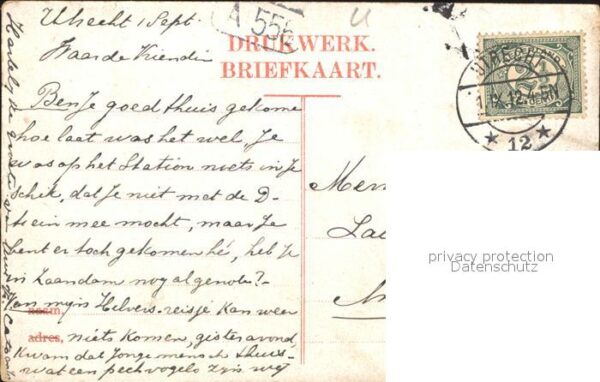 Utrecht 1 Sept.
Waarde Vriendin
Ben je goed thuis gekome
hoe laat was het wel. Je
was op het Station niets in je
schik, dat je niet met de D-
trein mee mocht, maar je
bent er toch gekomen hé, heb je
in Zaandam nog al genote?-
Van mijn Hilvers. reisje kan weer
niets komen, gisteravond,
kwam dat jonge mensch thuis-
wat een pechvogels zijn wij
naam,
adres,
A 558
DRUKWERK.
BRIEFKAART.
UTRECHT
1.IX.12.
12
privacy protection
Datenschutz